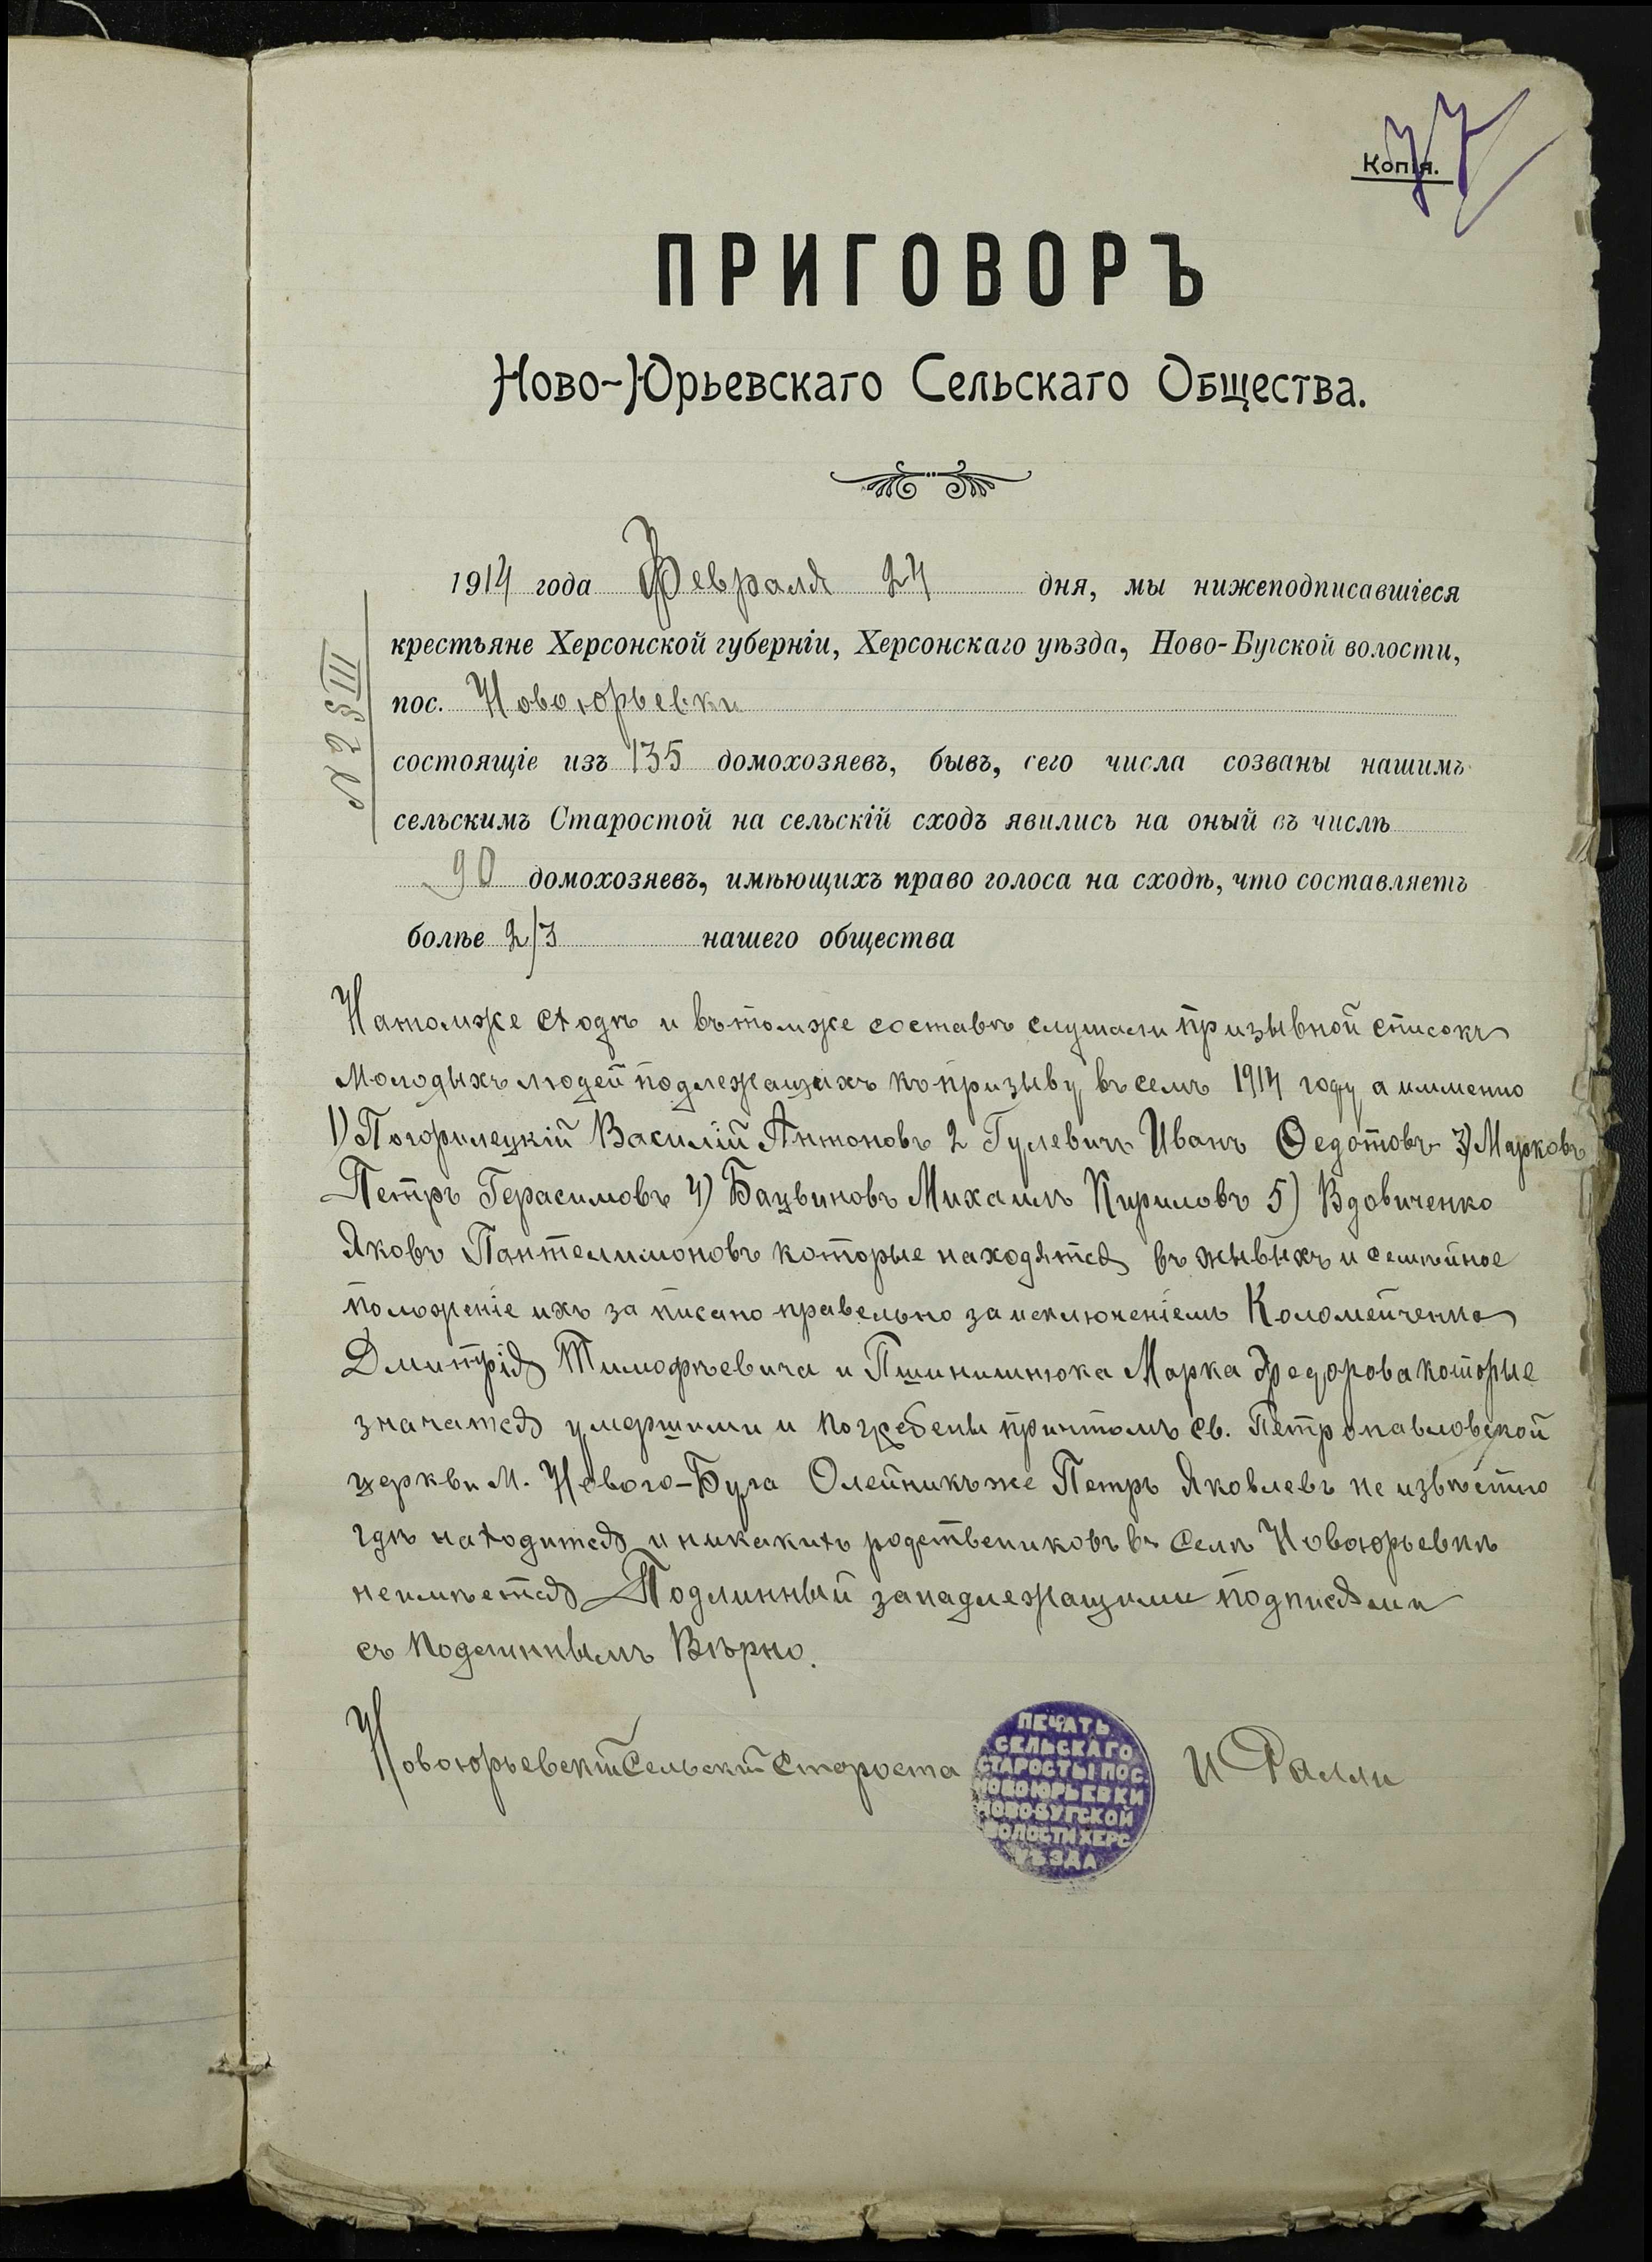 77
Копія.
ПРИГОВОРЪ
Ново-Юрьевскаго Сельскаго Общества.
1914 года Февраля 24 дня, мы нижеподписавшіеся
крестьяне Херсонской губерніи, Херсонскаго уѣзда, Ново-Бугской волости,
пос. Новоюрьевки
состоящіе изъ 135 домохозяевъ, бывъ, сего числа созваны нашимъ
сельскимъ Старостой на сельскій сходъ явились на оный въ числѣ
90 домохозяевъ, имѣющихъ право голоса на сходѣ, что составляетъ
болѣе 2/3 нашего общества
N 2 § III
Натомже сходѣ и вътомже составѣ слушали призывной списокъ
Молодыхъ людей подлежащихъ къпризыву въсемъ 1914 году а имменно
1) Погорилецкій Василій Антоновъ 2 Гулевичъ Иванъ Ѳедотовъ 3) Марковъ
Петръ Герасимовъ 4) Бацвиновъ Михаилъ Кириловъ 5) Вдовиченко
Яковъ Пантелимоновъ которые находятся въ жывыхъ и семѣйное
положеніе ихъ за писано правельно за исключеніемъ Коломейченка
Дмитрія Тимофѣевича и Пшинишнюка Марка Федорова которые
значатся умершими и погребены причтомъ св. Петропавловской
церкви М. Новаго-Буга Олейникъже Петръ Яковлевъ не извѣстно
гдѣ находится и никакихъ родствениковъ въ селѣ Новоюрьевкѣ
неимѣется Подлинный занадлежащими подписями
съ Подлиннымъ Вѣрно.
Новоюрьевскій Сельскій Староста И Ралли
ПЕЧАТЬ
СЕЛЬСКАГО
СТАРОСТЫ ПОС.
НОВОЮРЬЕВКИ
НОВОБУГСКОЙ
ВОЛОСТИ ХЕРС.
УѢЗДА